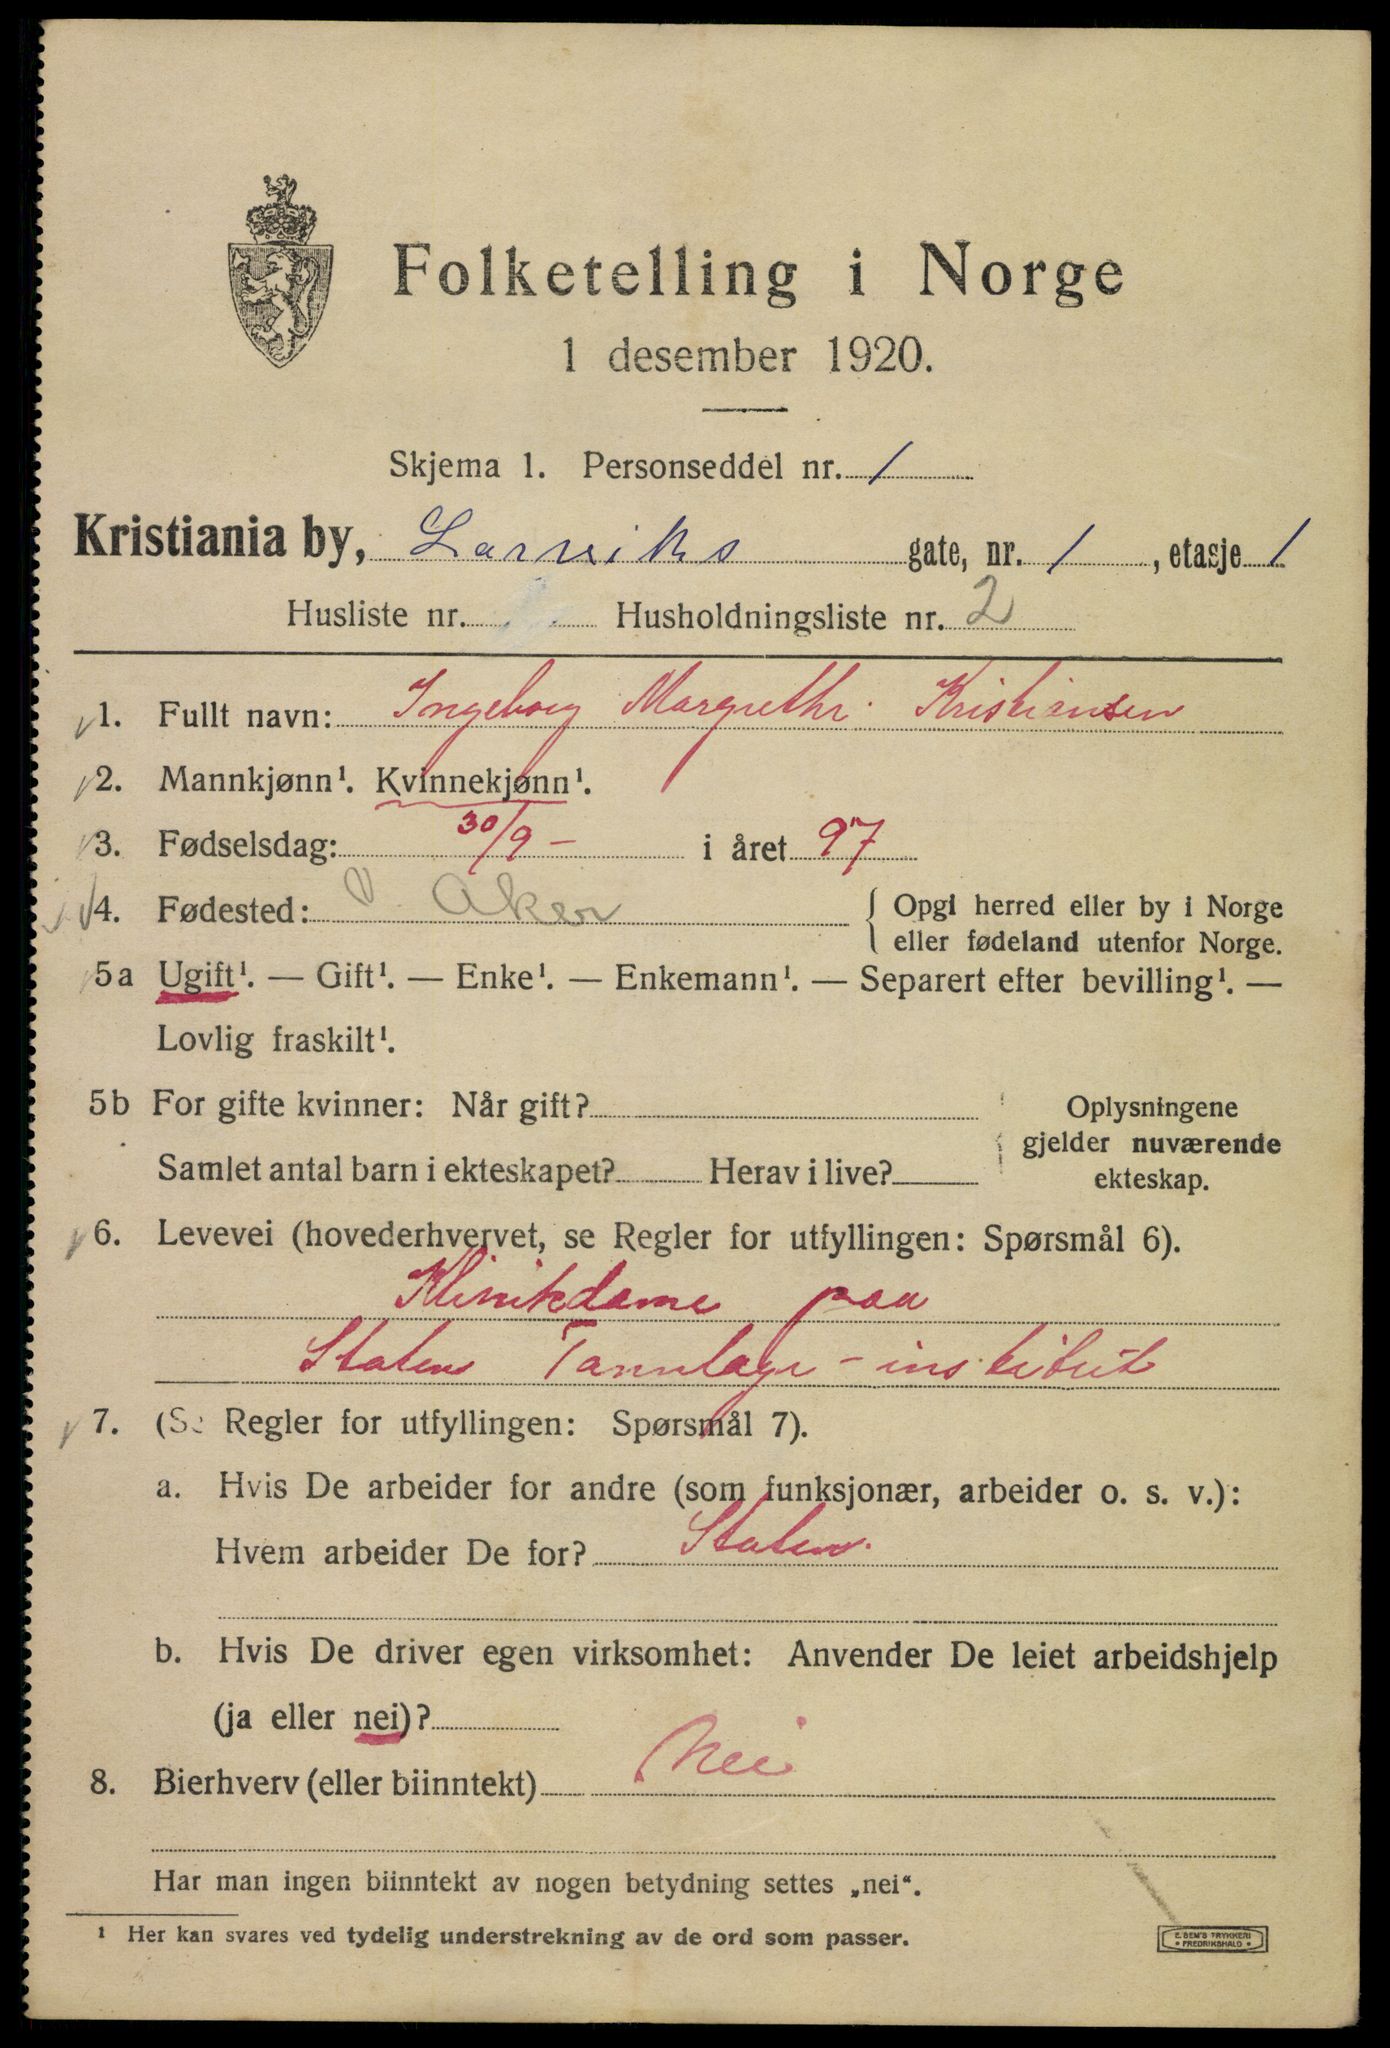 Folketelling i Norge
1 desember 1920.
Skjema 1. Personseddel nr. 1
Kristiania by, Larviks gate, nr. 1, etasje 1
Husliste nr. Husholdningsliste nr. 2
1. Fullt navn: Ingeborg Margrethe Kristiansen
2. Mannkjønn¹. Kvinnekjønn¹.
3. Fødselsdag: 30/9 - i året 97
4. Fødested: V. Aker { Opgi herred eller by i Norge
eller fødeland utenfor Norge.
5a Ugift¹. — Gift¹. — Enke¹. — Enkemann¹. — Separert efter bevilling¹. —
Lovlig fraskilt¹.
5b For gifte kvinner: Når gift? Oplysningene
gjelder nuværende
Samlet antal barn i ekteskapet? Herav i live? ekteskap.
6. Levevei (hovederhvervet, se Regler for utfyllingen: Spørsmål 6).
Klinikdame paa
Statens Tannlæge-institut
7. (Se Regler for utfyllingen: Spørsmål 7).
a. Hvis De arbeider for andre (som funksjonær, arbeider o. s. v.):
Hvem arbeider De for? Staten.
b. Hvis De driver egen virksomhet: Anvender De leiet arbeidshjelp
(ja eller nei)?
8. Bierhverv (eller biinntekt) Nei
Har man ingen biinntekt av nogen betydning settes „nei“.
¹ Her kan svares ved tydelig understrekning av de ord som passer.
E. SEM'S TRYKKERI
• FREDRIKSHALD •